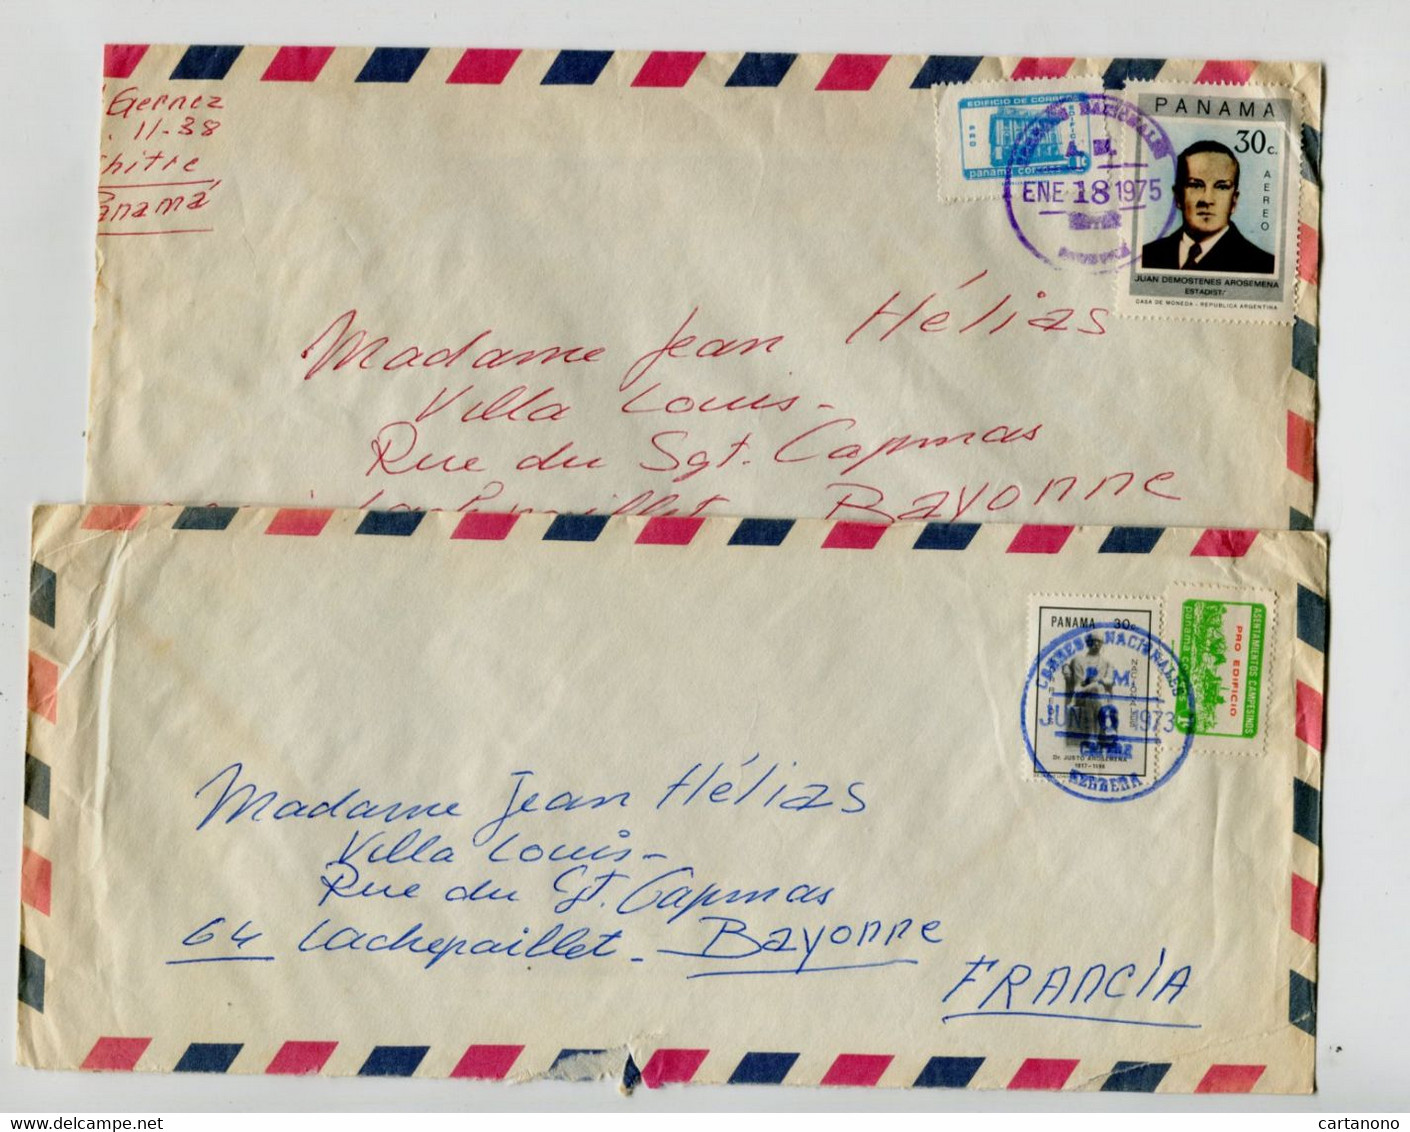 Gernez
11-38
Chitre
Panamá
EDIFICIO DE CORREOS
panama correos
1c
CORREOS NACIONALES
A. M.
ENE 18 1975
CHITRE
PANAMA
30c.
AEREO
JUAN DEMOSTENES AROSEMENA
ESTADISTA
CASA DE MONEDA - REPUBLICA ARGENTINA
Madame Jean Hélias
Villa Louis-
Rue du Sgt. Capmas
Lachepaillet Bayonne
PANAMA 30c.
Dr. JUSTO AROSEMENA
1817-1896
CORREOS NACIONALES
P. M.
JUN 6 1973
CHITRE
HERRERA
ASENTAMIENTOS CAMPESINOS
PRO EDIFICIO
panama correos
Madame Jean Hélias
Villa Louis-
Rue du Sgt. Capmas
64 Lachepaillet - Bayonne
FRANCIA
Delcampe.net
cartanono